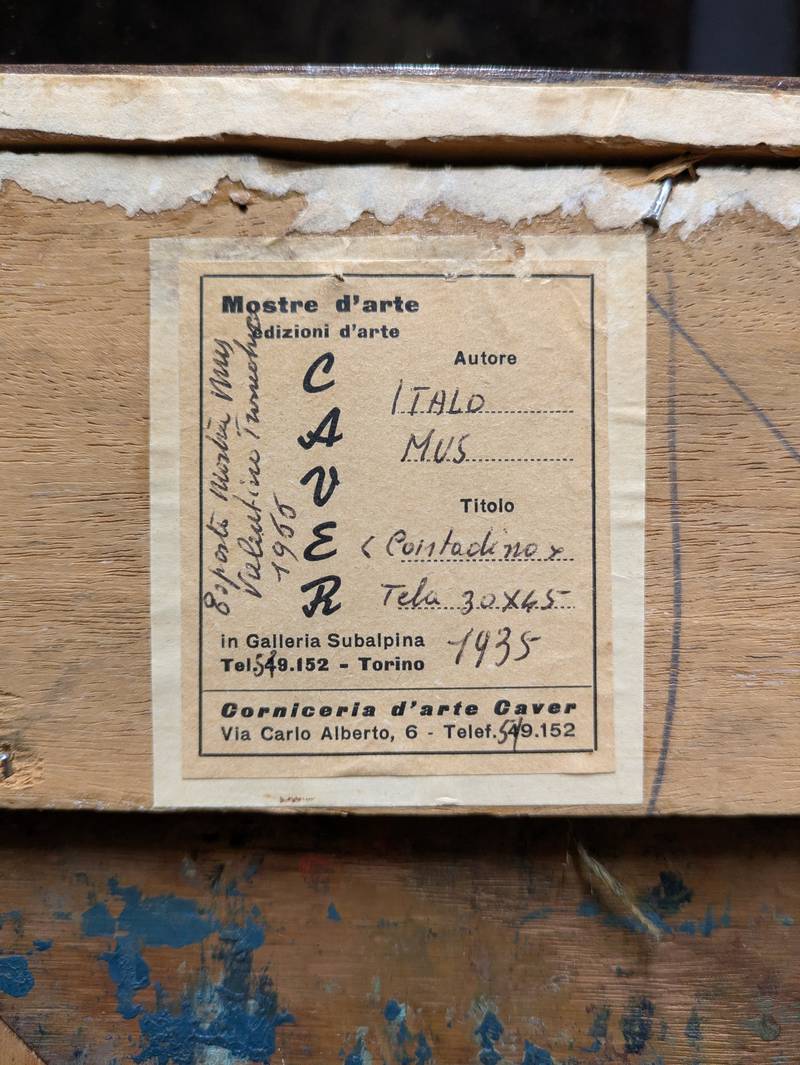 Mostre d'arte
edizioni d'arte
CAVER
Autore
ITALO
MUS
Titolo
< Contadino >
Tela 30X45
1935
in Galleria Subalpina
Tel. 549.152 - Torino
Corniceria d'arte Caver
Via Carlo Alberto, 6 - Telef. 549.152
Esposto Mostra Mus
Valentino
1966